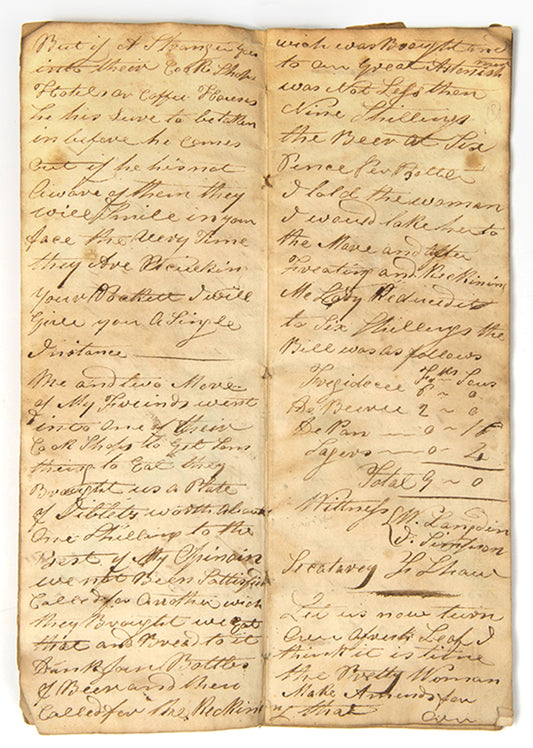 But if A Stranger Goes
into their Cook Shops
Hotels or Coffee Houses
he his Sure to be taken
in before he comes
out if he his not
Aware of them they
will Smile in your
face the Very Time
they Are
Your Pockett I will
Give you A Single
Instance
Me and two More
of My Freinds went
into one of their
Cook Shops to Get Som
thing to Eat they
Brought us a Plate
of Giblets worth about
One Shilling to the
Best of My Opinoin
we not Been Sattesfied
Called for Another wich
they Brought we Eat
that and Bread to it
Drank four Bottles
of Beer and then
Called for the Reckin
wich was Brought and
to our Great Astonish
ment
was Not Less than
Nine Shillings
the Beer at Six
Pence Per Bottle
I told the woman
I would take her to
the Mare and after
Treating and Reckining
Me Lady Reduced it
to Six Shillings the
Bill was as follows
Sous
6 0
De Beerre 2 0
De Pan 0 18
0 4
Total 9 0
Wittness
W. Langdon
Simpson
Secatarey Shaw
Let us now turn
Over A fresh Leaf I
think it is time
the Pretty Woman
Make Amends for
ing that